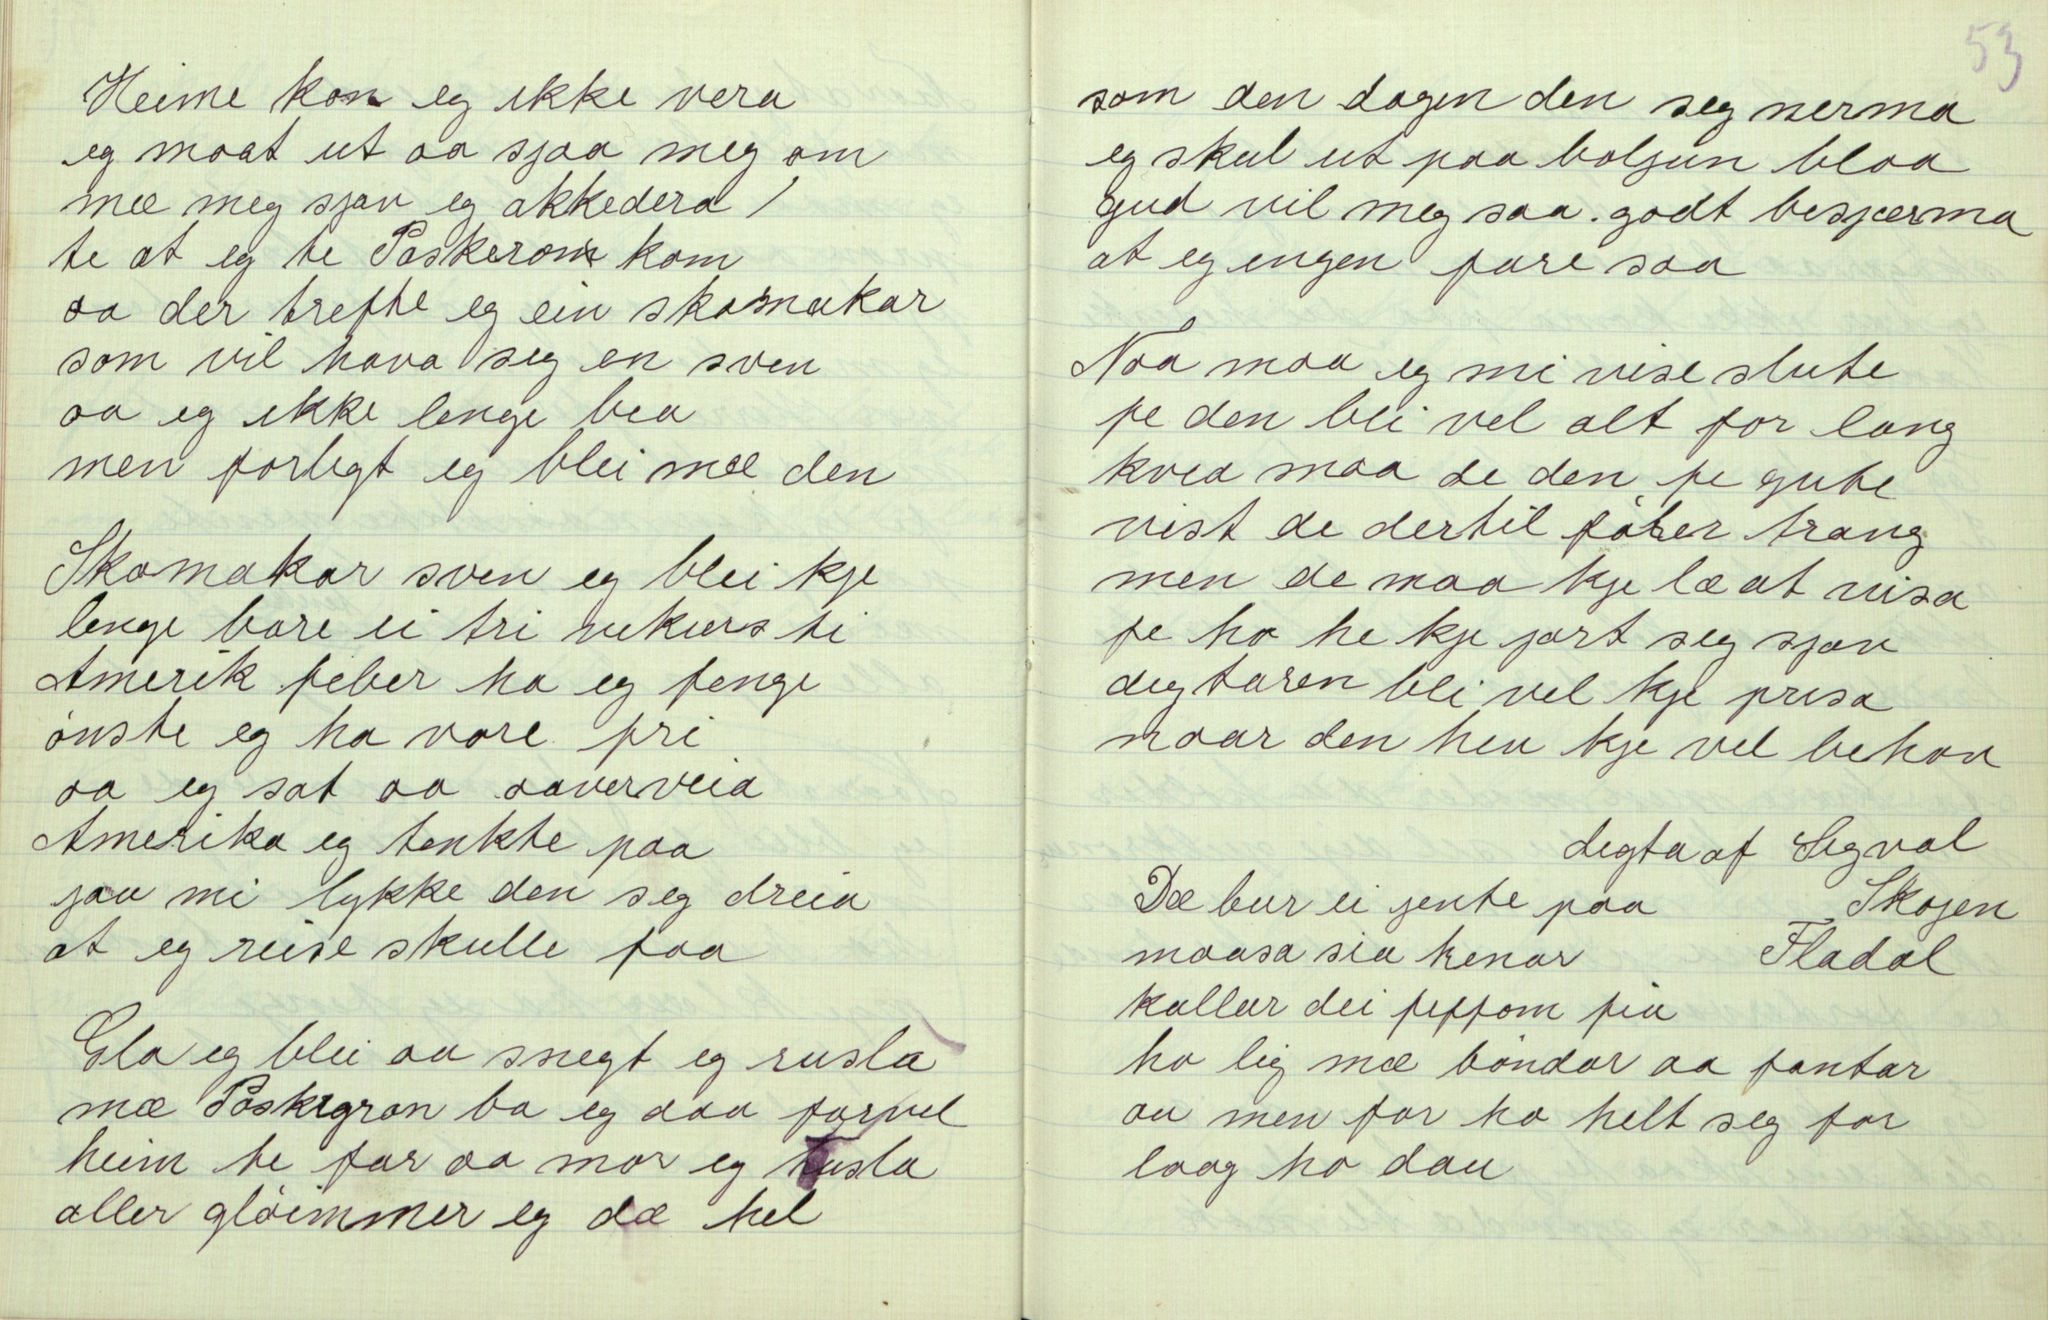 Heime kan eg ikke vera
eg maat ut aa sjaa meg om
mæ meg sjav eg akkedera
te at eg te Paskeron kom
aa der trefte eg ein skomakar
som vil hava seg en sven
aa eg ikke lenge bea
men forligt eg blei mæ den
Skomakar sven eg blei kje
lenge bare ei tri vekurs ti
Amerik feber ha eg fenge
ønste eg ha vore fri
aa eg sat aa aaverveia
Amerika eg tenkte paa
jau mi lykke den seg dreia
at eg reise skulle faa
Gla eg blei aa snegt eg rusla
mæ Paskegron ba eg daa farvel
heim te far aa mor eg tusla
aller gløimmer eg dæ hel
53
som den dagen den seg nerma
eg skul ut paa boljun blaa
gud vil meg saa godt besjærma
at eg engen fare saa
Naa maa eg mi vise slute
fe den bli vel alt for lang
kvea maa de den fe gute
vist de dertil føler trang
men de maa kje læ at visa
fe ho he kje jort seg sjav
degtaren bli vel kje prisa
naar den heu kje vel behav
degta af Sigval
Skojen
Fladal
Dæ bur ei jente paa
maasa sia henar
kallar dei feffom fia
ho lig mæ bøndar aa fantar
au men far ho helt seg for
laag ho dau